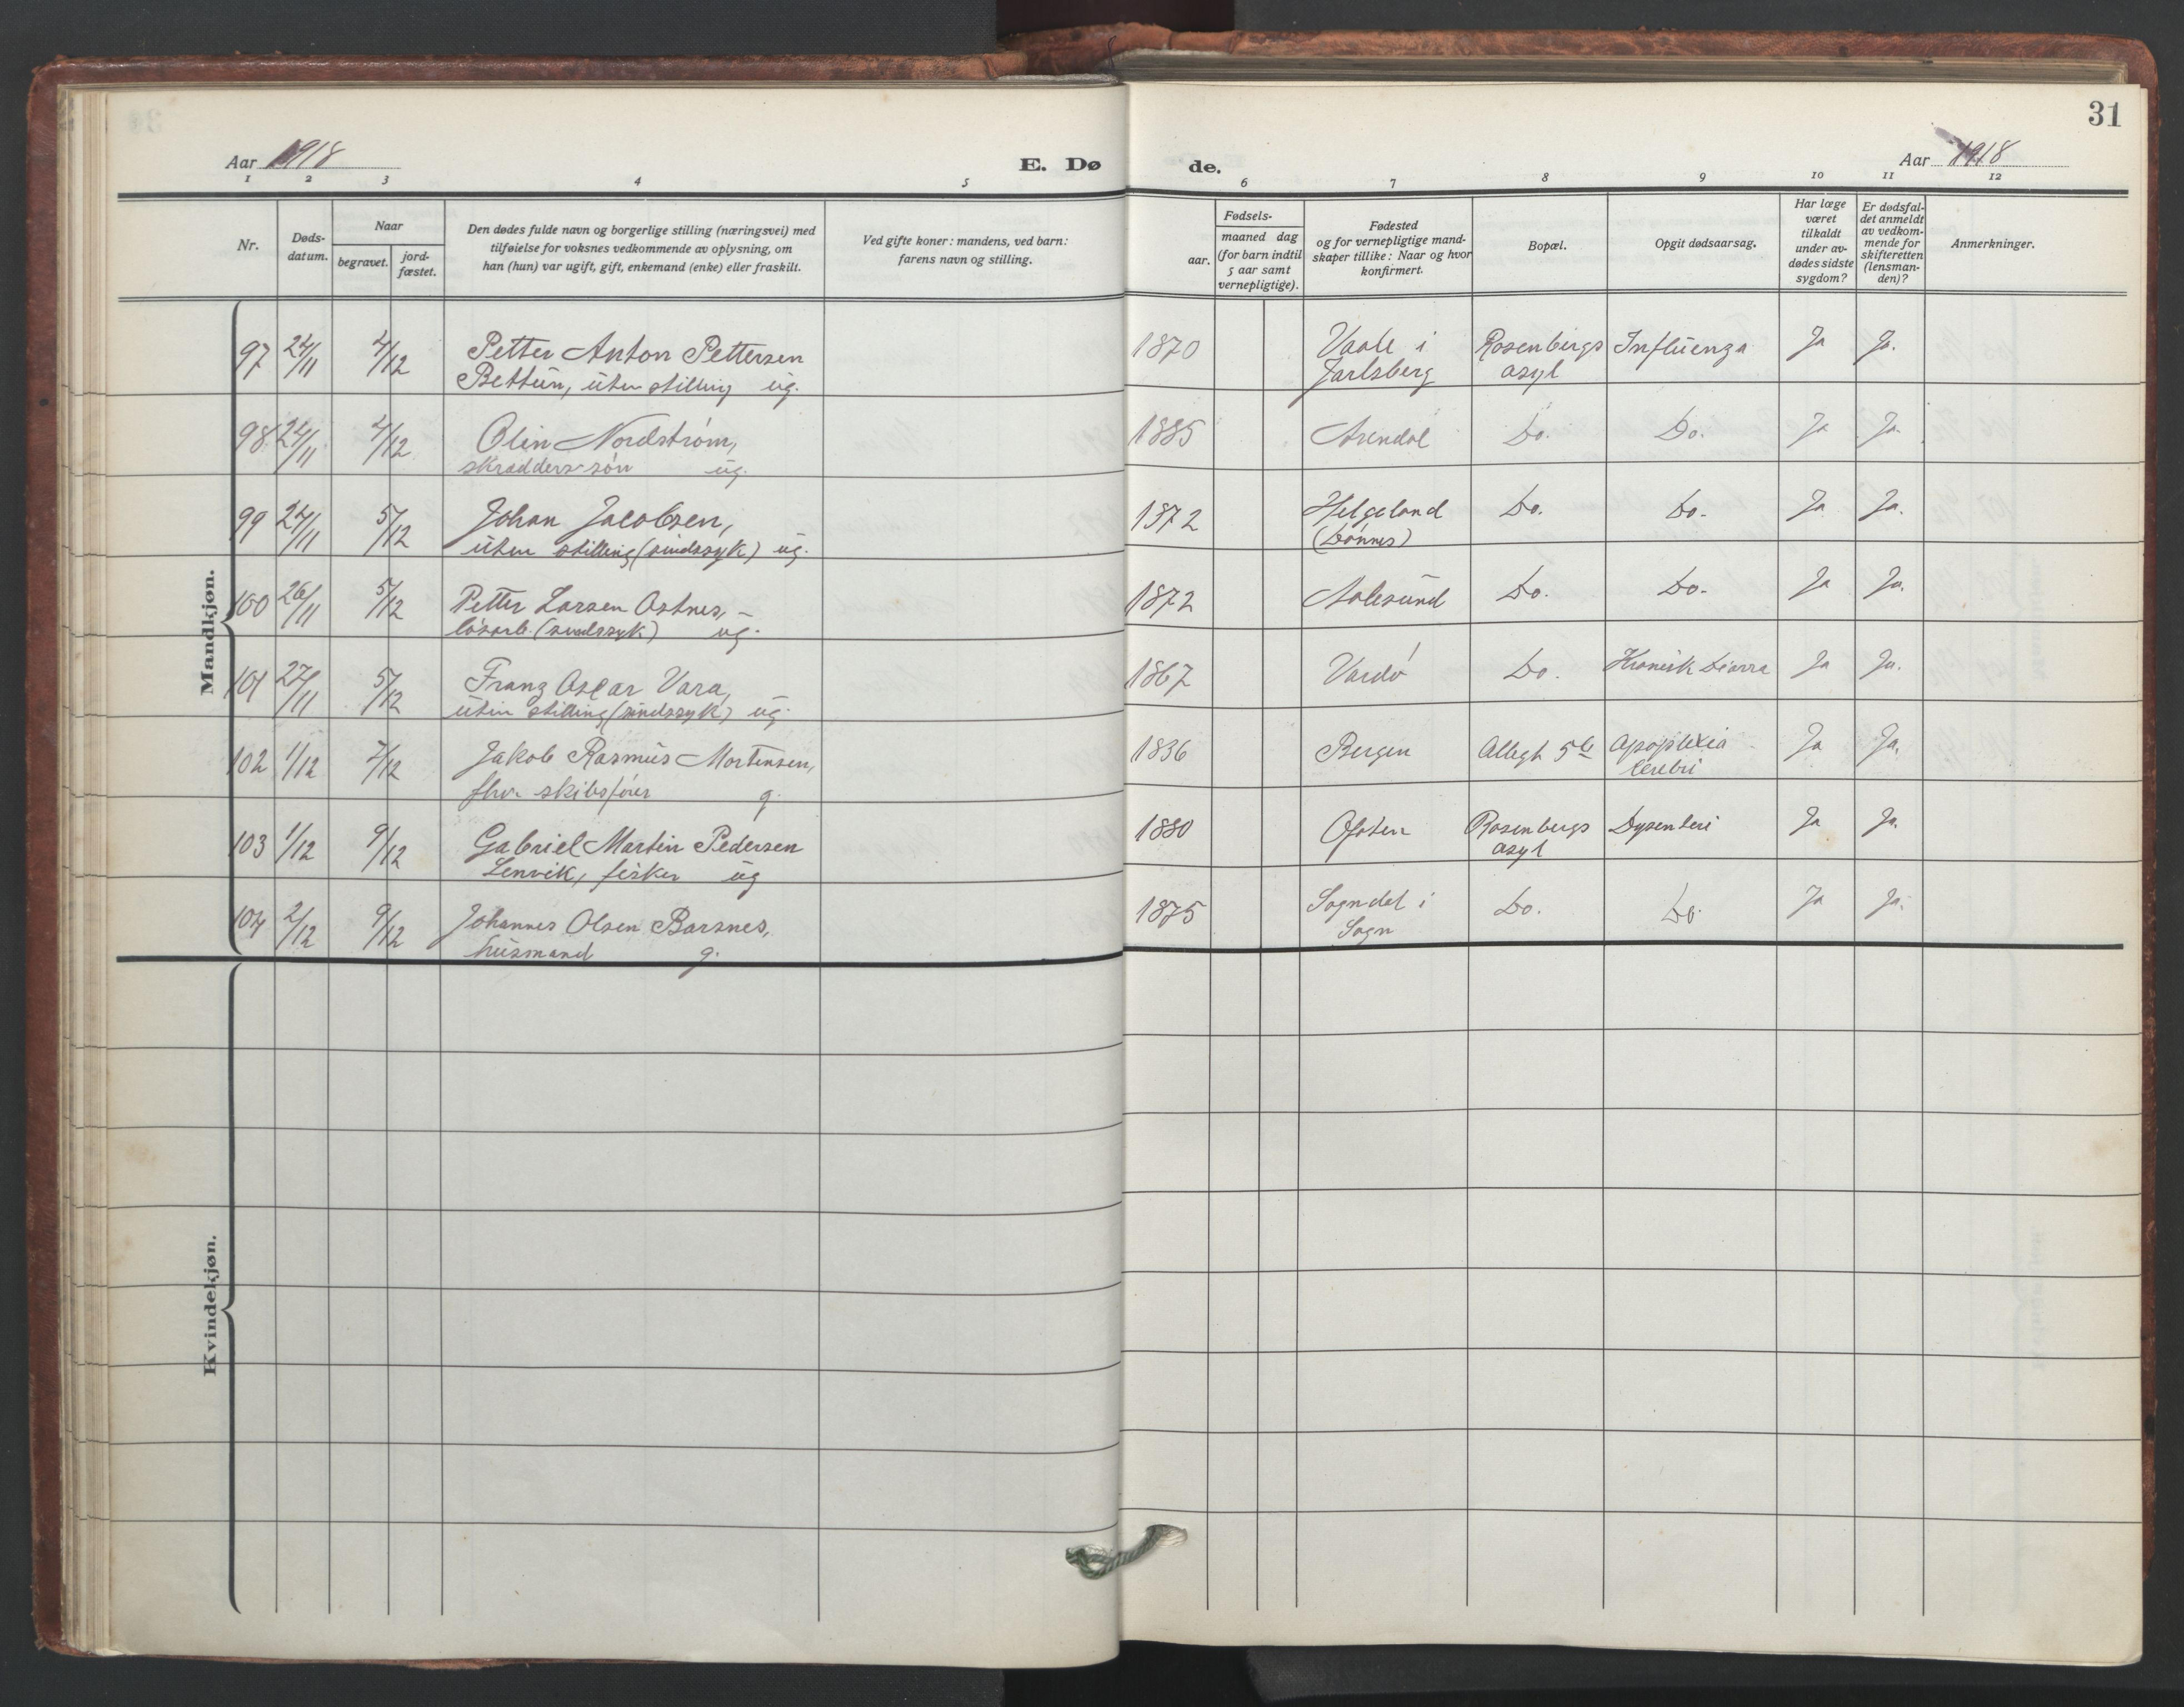 31
Aar 1918 E. Dø de. Aar 1918
1 2 3 4 5 6 7 8 9 10 11 12
Nr.
Døds-
datum.
Naar
begravet.
jord-
fæstet.
Den dødes fulde navn og borgerlige stilling (næringsvei) med
tilføielse for voksnes vedkommende av oplysning, om
han (hun) var ugift, gift, enkemand (enke) eller fraskilt.
Ved gifte koner: mandens, ved barn:
farens navn og stilling.
Fødsels-
aar.
maaned dag
(for barn indtil
5 aar samt
vernepligtige).
Fødested
og for vernepligtige mand-
skaper tillike: Naar og hvor
konfirmert.
Bopæl.
Opgit dødsaarsag.
Har læge
været
tilkaldt
under av-
dødes sidste
sygdom?
Er dødsfal-
det anmeldt
av vedkom-
mende for
skifteretten
(lensman-
den)?
Anmerkninger.
Mandkjøn.
97 24/11 4/12 Petter Anton Pettersen 1870 Vaale i Rosenbergs Influenza Ja Ja.
Bettum, uten stilling ug. Jarlsberg asyl
98 24/11 4/12 Olin Nordstrøm, 1885 Arendal Do. Do. Ja Ja.
skrædderssøn ug.
99 24/11 5/12 Johan Jacobsen, 1872 Helgeland Do. Do. Ja Ja.
uten stilling (sindssyk) ug. (Dønnes)
100 26/11 5/12 Petter Larsen Ostnes, 1872 Aalesund Do. Do. Ja Ja.
løsarb. (sindssyk) ug.
101 27/11 5/12 Franz Oscar Vara, 1867 Vardø Do. Kronisk Diarra Ja Ja.
uten stilling (sindssyk) ug.
102 1/12 7/12 Jakob Rasmus Mortensen, 1836 Bergen Allegt 5b Apoplexia Ja Ja.
fhv. skibsfører g. cerebri
103 1/12 9/12 Gabriel Martin Pedersen 1880 Ofoten Rosenbergs Dysenteri Ja Ja.
Lenvik, fisker ug asyl
104 2/12 9/12 Johannes Olsen Barsnes, 1875 Sogndal i Do. Do. Ja Ja.
husmand g. Sogn
Kvindekjøn.